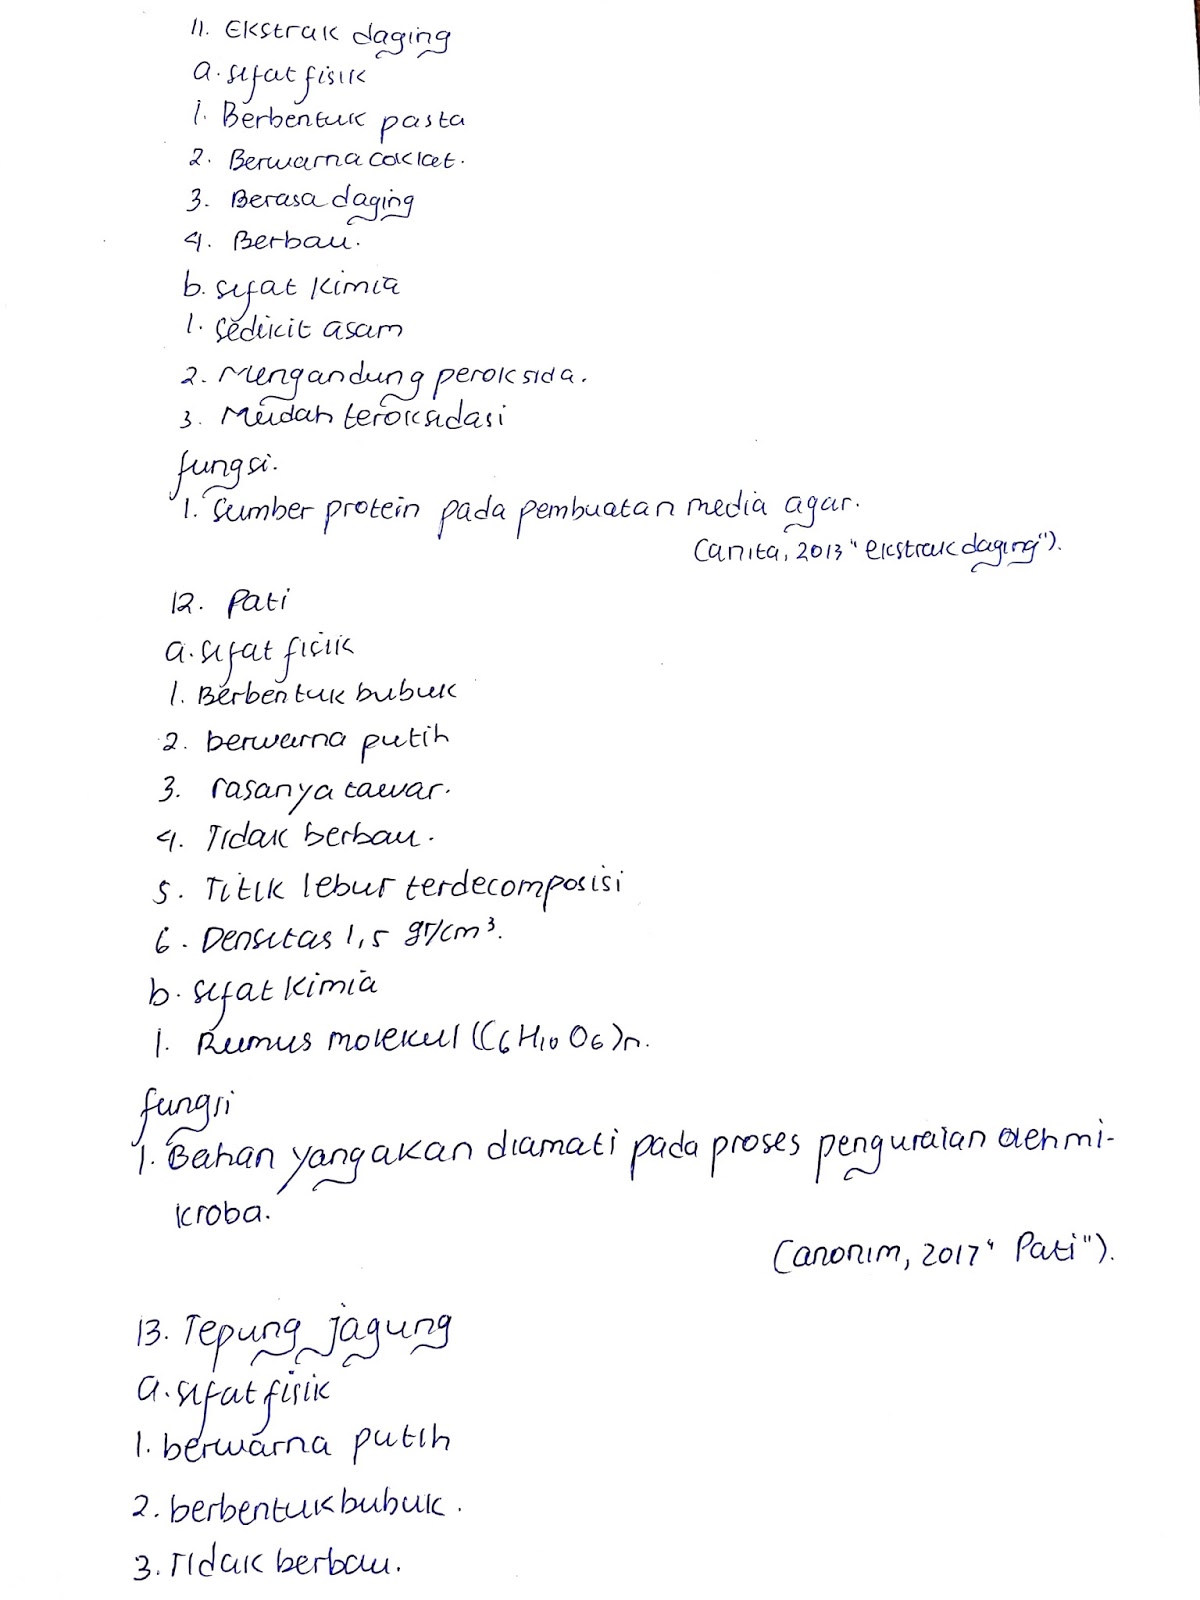 11. Ekstrak daging
a. sifat fisik
1. Berbentuk pasta
2. Berwarna coklat.
3. Berasa daging
4. Berbau.
b. sifat kimia
1. sedikit asam
2. Mengandung peroksida.
3. Mudah teroksidasi
fungsi.
1. Sumber protein pada pembuatan media agar.
(anita, 2013 "ekstrak daging").
12. Pati
a. sifat fisik
1. Berbentuk bubuk
2. berwarna putih
3. rasanya tawar.
4. Tidak berbau.
5. Titik lebur terdecomposisi
6. Densitas 1,5 gr/cm³.
b. sifat kimia
1. Rumus molekul (C6H10O6)n.
fungsi
1. Bahan yang akan diamati pada proses penguraian oleh mi-
kroba.
(anonim, 2017 "Pati").
13. Tepung jagung
a. sifat fisik
1. berwarna putih
2. berbentuk bubuk.
3. Tidak berbau.